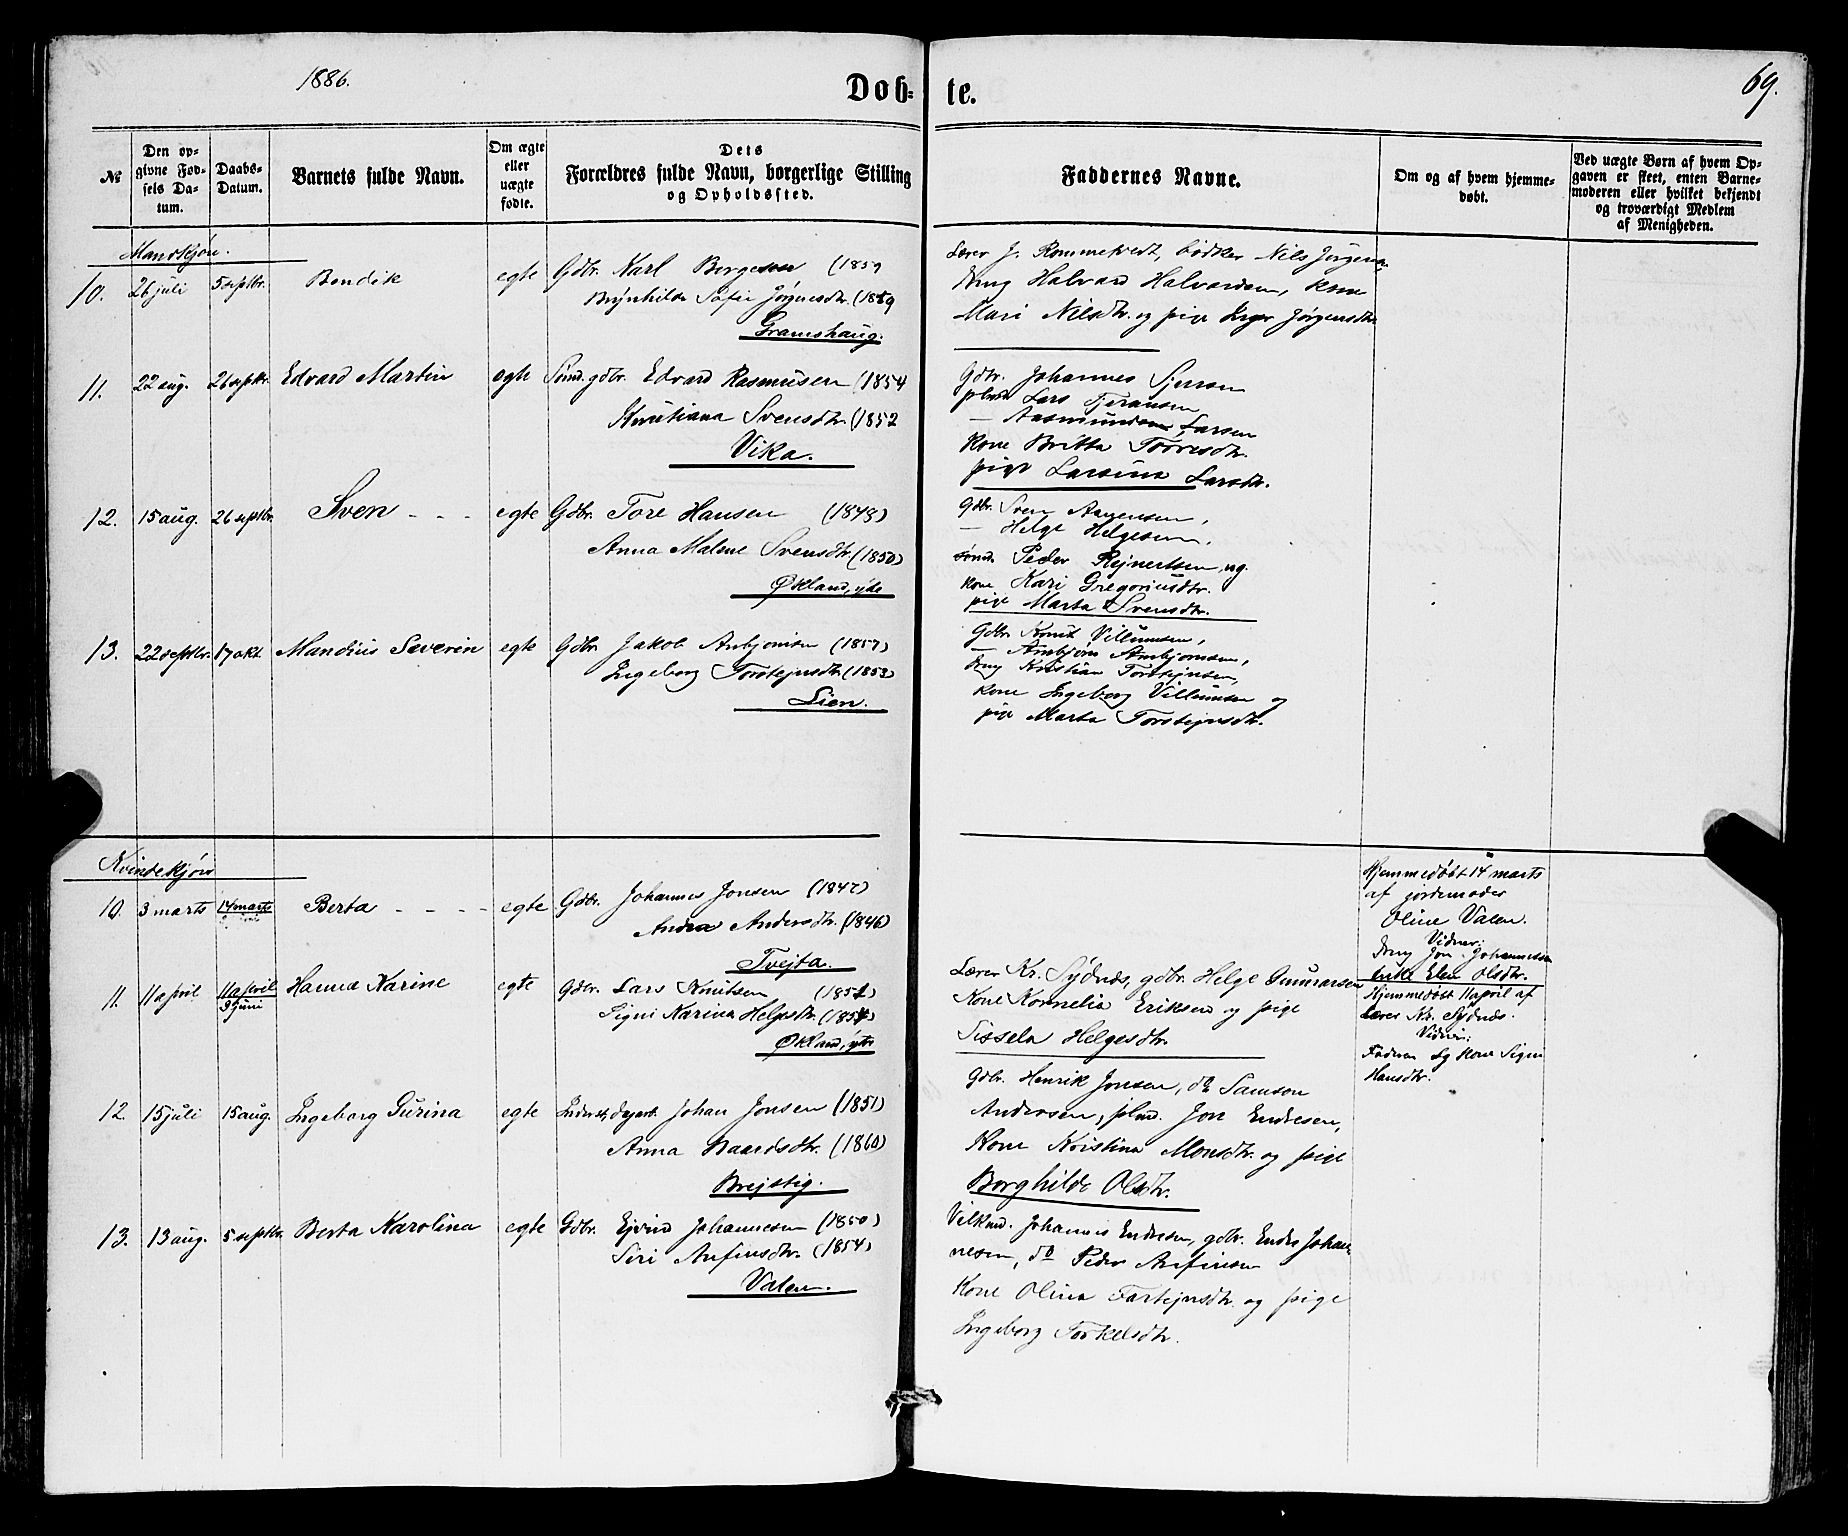 1886.
Dob=
te.
69.
№
Den op=
givne Fød=
sels Da=
tum.
Daabs=
Datum.
Barnets fulde Navn.
Om ægte
eller
uægte
fødte.
Dets
Forældres fulde Navn, borgerlige Stilling
og Opholdssted.
Faddernes Navne.
Om og af hvem hjemme=
døbt.
Ved uægte Børn af hvem Op=
gaven er skeet, enten Barne=
moderen eller hvilket bekjendt
og troværdigt Medlem
af Menigheden.
Mandkjøn.
10. 26 juli 5 septbr. Bendik egte Gdbr. Karl Borgesen (1859
Brynhilda Sofie Jørgensdtr. (1859
Gramshaug.
Lærer J. Rommetvedt, bødker Nils Jørgensen
Ung Halvard Halvardsen, kone
Mari Nilsdtr. og pige Inger Jørgensdtr.
11. 22 aug. 26 septbr. Edvard Martin egte Sømd. gdbr. Edvard Rasmussen (1854
Kristiana Svensdtr. (1852
Vika.
Gdbr. Johannes Sjursen
plmd. Lars Tjeransen
— Aasmund Larsen
Kone Britta Tooresdtr.
pige Larsina Larsdtr.
12. 15 aug. 26 septbr. Sven - - - egte Gdbr. Tore Hansen (1848)
Anna Malene Svensdtr. (1850)
Økland, ytre
Gdbr. Sven Aagensen,
— Helge Helgesen,
sømd. Peder Rejnertsen, ug.
Kone Kari Gregoriusdtr.
pige Marta Svensdtr.
13. 22 septbr. 17 okt. Mandius Severin egte Gdbr. Jakob Anbjørnsen (1857)
Ingeborg Torstejnsdtr. (1853)
Lien.
Gdbr. Knut Villumsen,
— Arnbjørn Arnbjørnsen,
Ung Kristian Torstejnsen,
Kone Ingeborg Villumsen og
pige Marta Torstejnsdtr.
Kvindekjøn
10. 3 marts 14 marts Berta - - - - egte Gdbr. Johannes Jonsen (1847)
Andrea Andersdtr. (1846)
Tvejta.
Hjemmedøbt 14 marts
af jordemoder
Oline Valen.
Vidner:
Ung Jon Johannessen
enke Elen Olsdtr.
11. 11 april 11 april Hanna Karine egte Gdbr. Lars Knutsen (1851)
3 juni
Signi Karina Helgesdtr. (1854)
Økland, ytre
Lærer Kr. Sydnæs, gdbr. Helge Gunnarsen
Kone Kornelia Eriksen og pige
Sissela Helgesdtr.
Hjemmedøbt 11 april af
Lærer Kr. Sydnæs.
Vidner:
Faderen og Kone Signi
Hansdtr.
12. 15 juli 15 aug. Ingeborg Gurina egte Inderst, dagarb. Johan Jonsen (1851)
Anna Haardsdtr. (1860)
Brejstig.
Gdbr. Henrik Jonsen, do Samson
Andersen, plmd. Jon Endresen,
Kone Kristina Monsdtr. og pige
Borghilda Olsdtr.
13. 13 aug. 5 septbr. Berta Karolina egte Gdbr. Ejvind Johannesen (1850)
Siri Arfinsdtr. (1854)
Valen.
Vilkmd. Johannes Endresen, gdbr. Endre Johan=
nesen, do Peder Arfinsen
Kone Olina Tarstejnsdtr. og pige
Ingeborg Torkelsdtr.